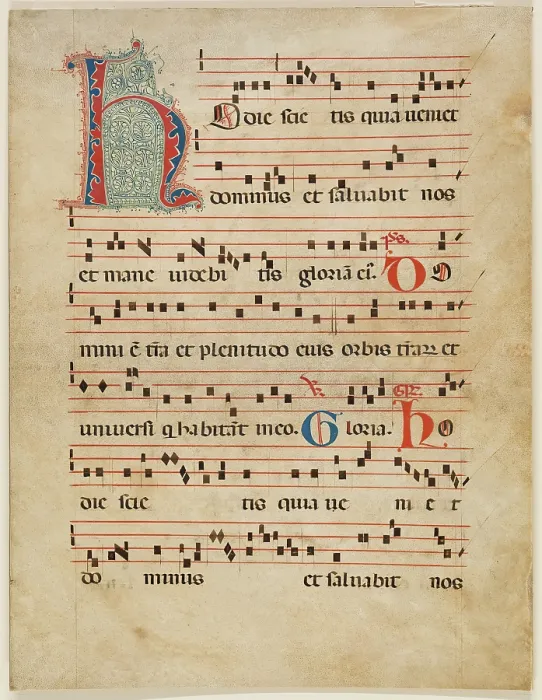 HO die scie tis quia veniet
dominus et salvabit nos
et mane videbi tis gloriā ei'. ps. DO
mini ē t̄ra et plenitudo eius orbis t̄rarꝝ et
universi q habitāt in eo. V. Gloria. Gr. Ho
die scie tis quia ve ni e t
do minus et salvabit nos